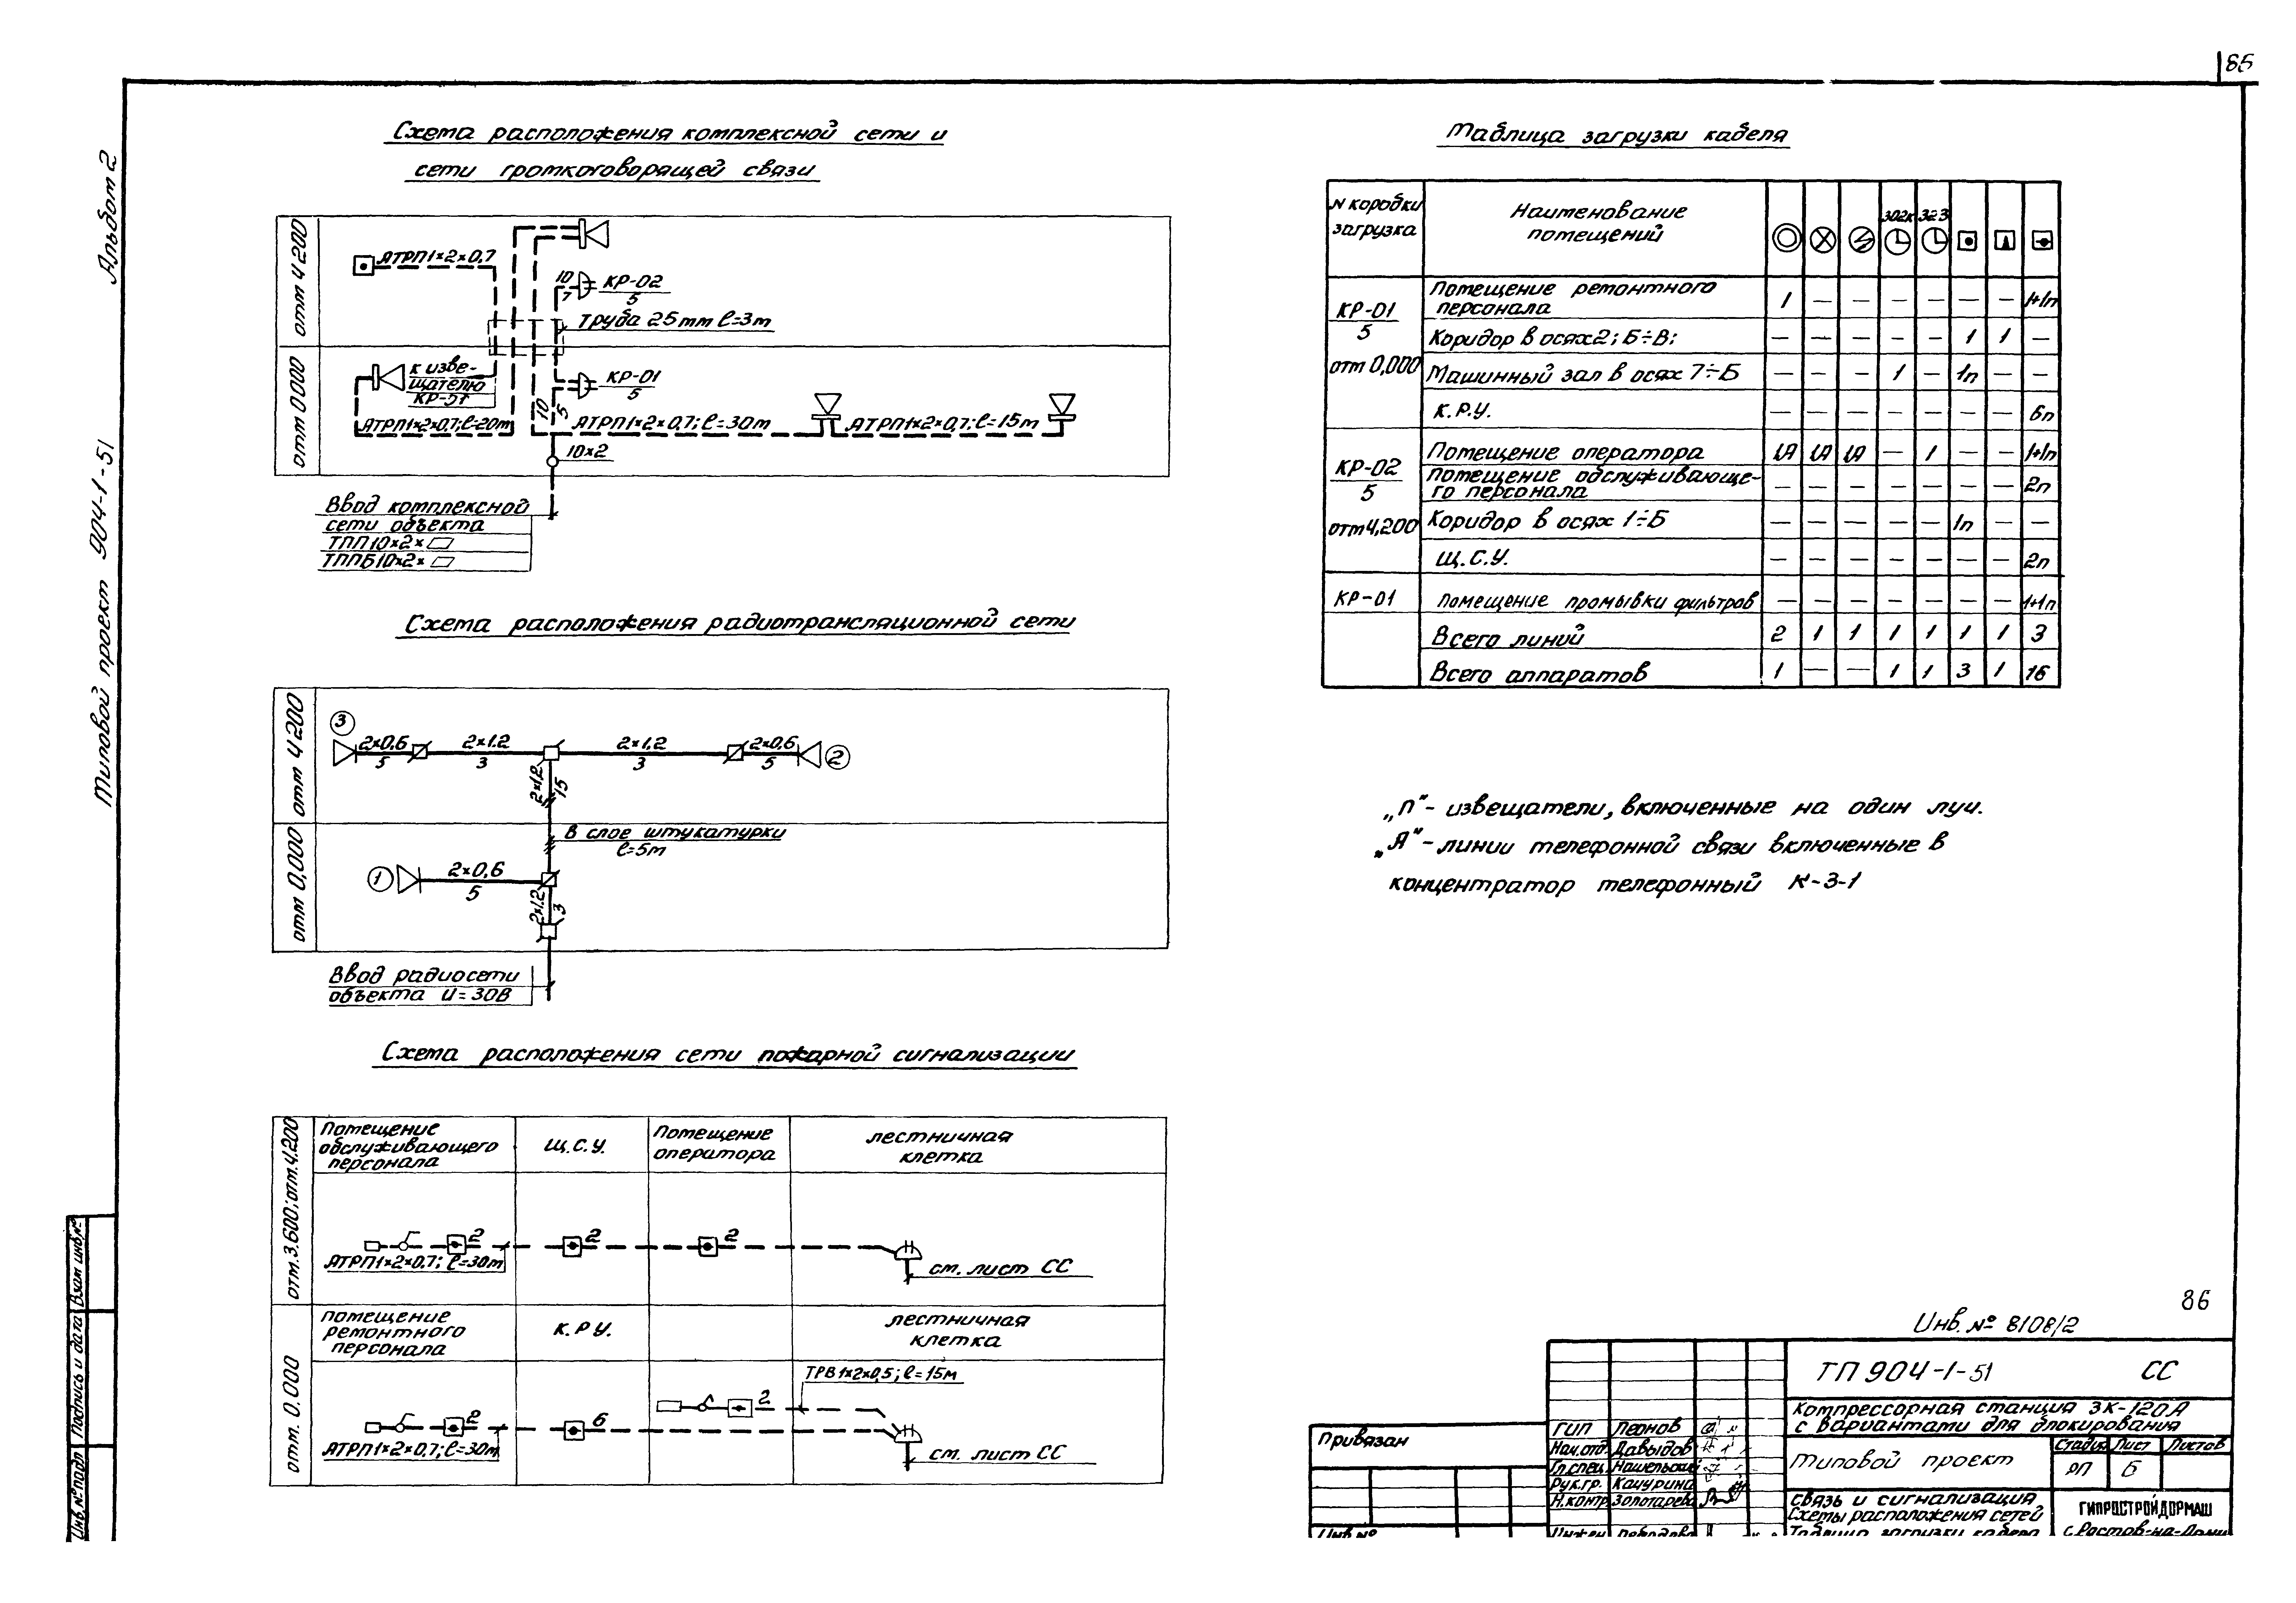 85
Альбом 2
Типовой проект 904-1-51
Схема расположения комплексной сети и
сети громкоговорящей связи
отм 4 200
АТРП1×2×0,7
10
7
КР-02
5
Труба 25мм ℓ=3м
отм 0000
к изве-
щателю
КР-51
КР-01
5
10
5
АТРП1×2×0,7; ℓ=20м
АТРП1×2×0,7; ℓ=30м
АТРП1×2×0,7; ℓ=15м
10×2
Ввод комплексной
сети объекта
ТПП10×2×
ТППБ10×2×
Схема расположения радиотрансляционной сети
отм 4 200
3
2×0,6
5
2×1.2
3
2×1,2
3
2×0,6
5
2
2×1,2
15
отм 0,000
В слое штукатурки
ℓ=5м
1
2×0,6
5
2×1.2
3
Ввод радиосети
объекта U=30В
Схема расположения сети пожарной сигнализации
отм.3.600; отм.4.200
Помещение
обслуживающего
персонала
Щ.С.У.
Помещение
оператора
лестничная
клетка
2
2
2
АТРП1×2×0.7; ℓ=30м
см. лист СС
отм. 0.000
помещение
ремонтного
персонала
К.РУ.
лестничная
клетка
ТРВ1×2×0,5; ℓ=15м
2
2
6
АТРП1×2×0,7; ℓ=30м
см. лист СС
Таблица загрузки кабеля
N коробки
загрузка
Наименование
помещений
302к
323
КР-01
5
отм 0,000
Помещение ремонтного
персонала
1 — — — — — — 1+1п
Коридор в осях 2; Б÷В; — — — — — 1 1 —
Машинный зал в осях 7÷Б — — — 1 — 1п — —
К.Р.У. — — — — — — — 6п
КР-02
5
отм 4,200
Помещение оператора 1Я 1Я 1Я — 1 — — 1+1п
Помещение обслуживающе-
го персонала — — — — — — — 2п
Коридор в осях 1÷Б — — — — — 1п — —
Щ.С.У. — — — — — — — 2п
КР-01 Помещение промывки фильтров — — — — — — — 1+1п
Всего линий 2 1 1 1 1 1 1 3
Всего аппаратов 1 — — 1 1 3 1 16
„п"- извещатели, включенные на один луч.
„Я"- линии телефонной связи включенные в
концентратор телефонный К-3-1
86
Инв. № 8108/2
ТП 904-1-51 СС
Компрессорная станция 3К-120А
с вариантами для блокирования
Типовой проект
Стадия Лист Листов
РП 6
Связь и сигнализация
Схемы расположения сетей
Таблица загрузки кабеля
ГИПРОСТРОЙДОРМАШ
г.Ростов-на-Дону
Привязан
Инв №
ГИП
Нач.отд. Давыдов
Гл.спец.
Рук.гр. Качурина
Н.контр. Золотарева
Инжен
Инв.№ подл Подпись и дата Взам инв.№